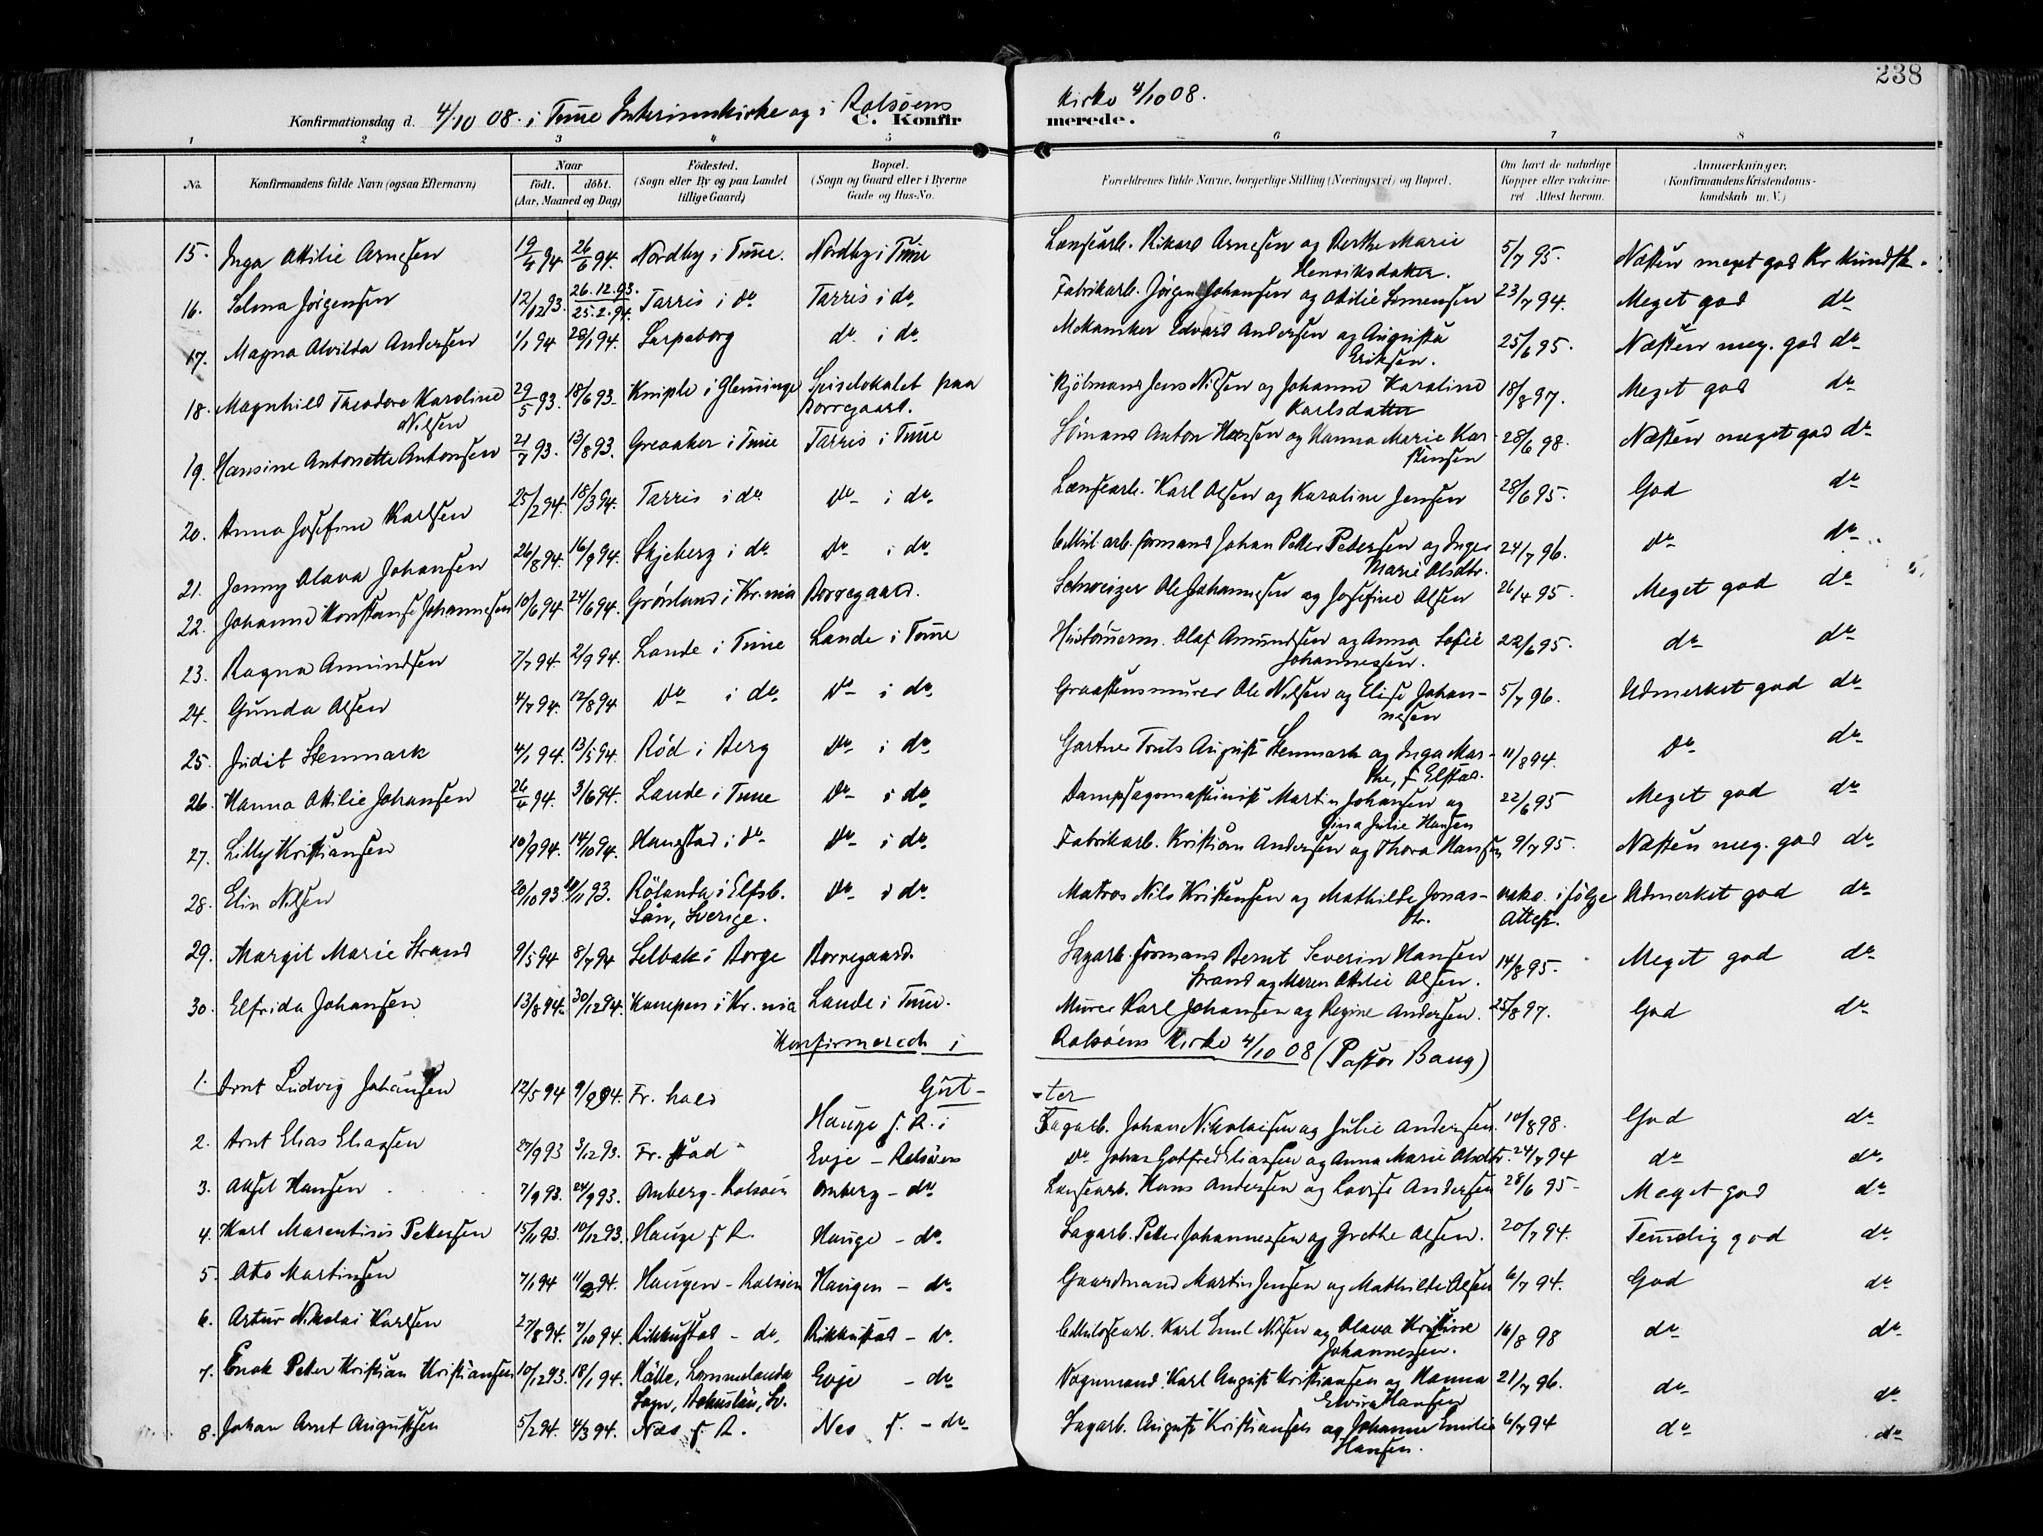 238
Konfirmationsdag d. 4/10 08. i Tune Interimskirke og i Rolsøens Kirke 4/10 08.
C. Konfirmerede.
1 2 3 4 5 6 7 8
No. Konfirmandens fulde Navn (ogsaa Efternavn) Naar født. døbt. (Aar, Maaned og Dag) Fødested. (Sogn eller By og paa Landet tillige Gaard) Bopæl. (Sogn og Gaard eller i Byerne Gade og Hus-No. Forældrenes fulde Navne, borgerlige Stilling (Næringsvei) og Bopæl. Om havt de naturlige Kopper eller vakcineret Attest herom. Anmærkninger. (Konfirmandens Kristendomskundskab m. V.)
15. Inga Otilie Arnesen 19/4 94 26/6 94. Nordby i Tune. Nordby i Tune Lænsearb. Rikard Arnesen og Berthe Marie Henriksdatter. 5/7 95. Næsten meget god Kr. kundsk.
16. Selma Jørgensen 12/12 93. 26.12.93. 25.2.94. Tarris i do Tarris i do Fabrikarb. Jørgen Johansen og Otilie Simensen 23/7 94. Meget god do
17. Magna Alvilda Andersen 1/1 94 28/1 94. Sarpsborg do i do Mekaniker Edvard Andersen og Augusta Eriksen. 25/6 95. Næsten meg. god do
18. Magnhild Theodore Karoline Nilsen 29/5 93. 18/6 93. Kniple i Glemminge Spiselokalet paa Borregaard. Kjølmand Jens Nilsen og Johanne Karoline Karlsdatter 18/8 97. Meget god do
19. Hansine Antonette Antonsen 21/7 93. 13/8 93. Greaaker i Tune Tarris i Tune Sømand Anton Hansen og Hanna Marie Karstensen 28/6 98. Næsten meget god do
20. Anna Josefine Karlsen 25/2 94. 18/3 94. Tarris i do do i do Lænsearb. Karl Olsen og Karoline Jensen 28/6 95. God do
21. Jenny Olava Johansen 26/8 94. 16/9 94. Skjeberg i do do i do Cellul. arb. formand Johan Petter Petersen og Inger Marie Olsdtr. 24/7 96. do do
22. Johanne Konstanse Johannesen 10/6 94 24/6 94. Grønland i Kr.nia Borregaard. Schweizer Ole Johannesen og Josefine Olsen 26/4 95. Meget god do
23. Ragna Amundsen 7/7 94. 2/9 94. Lande i Tune Lande i Tune Hustømerm. Olaf Amundsen og Anna Sofie Johannessen. 22/6 95. do do
24. Gunda Olsen 4/7 94. 12/8 94 do i do do i do Graastensmurer Ole Nilsen og Elise Johannesen 5/7 96. Udmerket god do
25. Judit Stenmark 4/1 94. 13/5 94. Rød i Berg do i do Gartner Truls August Stenmark og Inga Marthe, f. Elstad. 11/8 94. do do
26. Hanna Otilie Johansen 26/4 94. 3/6 94. Lande i Tune do i do Dampsagsmaskinist Martin Johansen og Gina Julie Hansen 22/6 95 Meget god do
27. Lilly Kristiansen 10/9 94. 14/10 94. Hanestad i do do i do Fabrikarb. Kristian Andersen og Thora Hansen 9/7 95. Næsten meg. god do
28. Elin Nilsen 20/10 93 /11 93. Rölanda i Elfsb. Län, Sverige. do i do Matros Nils Kristensen og Mathilde Jonasdtr. vakc. i følge Attest. Udmerket god do
29. Margit Marie Strand 9/5 94 8/7 94 Selbak i Borge Borregaard. Sagarb. formand Bernt Severin Hansen Strand og Maren Otilie Olsen. 14/8 95. Meget god do
30. Elfrida Johansen 13/8 94. 30/12 94. Kampen i Kr.nia Lande i Tune. Murer Karl Johansen og Regine Andersen. 25/8 97. God do
Konfirmerede i Rolsøens Kirke 4/10 08 (Pastor Bang)
Gutter
1. Arnt Ludvig Johansen 12/5 94 9/9 94. Fr. hald Hauge f. R. i Sagarb. Johan Nikolaisen og Julie Andersen. 10/8 98. God do
2. Arnt Elias Eliassen 27/9 93 3/12 93. Fr. stad Evje - Rolsøen do Johan Gotfred Eliassen og Anna Marie Olsdtr. 24/7 94 do do
3. Aksel Hansen 7/9 93. 24/9 93. Omberg - Rolsøen Omberg - do Lænsearb. Hans Andersen og Lovise Andersen 28/6 95 Meget god do
4. Karl Marentius Pettersen 15/11 93. 10/12 93. Hauge f R. Hauge - do Sagarb. Peter Johannessen og Grethe Olsen. 20/7 94. Temelig god do
5. Otto Martinsen 7/1 94 11/2 94. Haugen - Rolsøen Haugen - do Gaardmand Martin Jensen og Mathilde Olsen 6/7 94. God do
6. Artur Nikolai Karlsen 27/8 94. 7/10 94. Rikkustad - do Rikkustad - do Cellulosearb. Karl Emil Nilsen og Olava Kristine Johannessen. 16/8 98 do do
7. Enok Peter Kristian Kristiansen 10/12 93. 18/1 94. Hälle, Lommelanda Sogn, Bohuslän, Sv. Evje - do Vognmand Karl August Kristiansen og Hanna Elvira Hansen 21/7 96. do do
8. Johan Arnt Augustsen 5/2 94. 4/3 94. Næs f. R. Nes f. - do Sagarb. August Kristiansen og Johanne Emilie Hansen. 6/7 94 do do